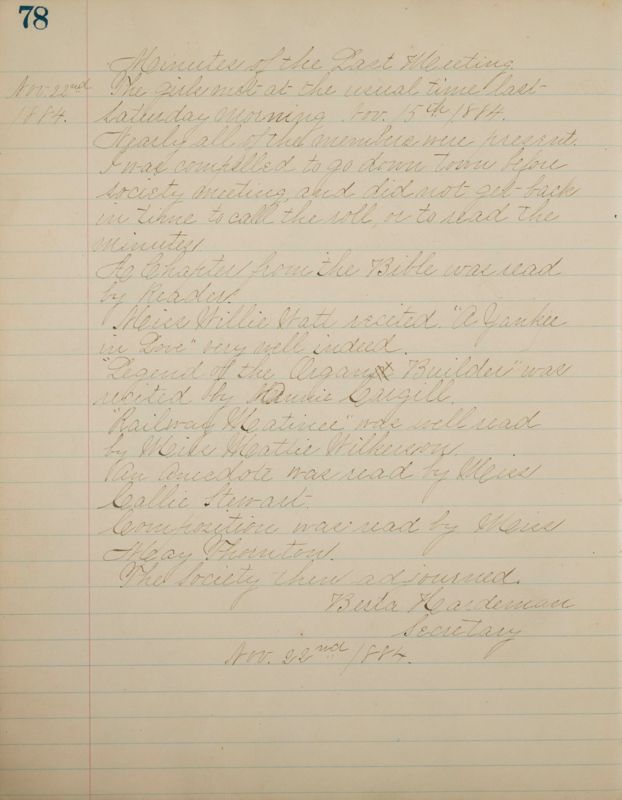 78
Minutes of the Last Meeting
Nov. 22nd
1884.
The girls met at the usual time last
Saturday morning Nov. 15th 1884.
Nearly all of the members were present.
I was compelled to go down town before
society meeting, and did not get back
in time to call the roll, or to read the
minutes.
A Chapter from the Bible was read
by Reader.
Miss Willie Watt recited. "A Yankee
in Love" very well indeed.
"Legend of the Organ Builder" was
recited by Cargill.
"Railway Matinee" was well read
by Miss Mattie Wilkerson.
An Anecdote was read by Miss
Callie Stewart.
Composition was read by Miss
May Thornton.
The Society then adjourned.
Berta Hardeman
Secretary
Nov. 22nd 1884.